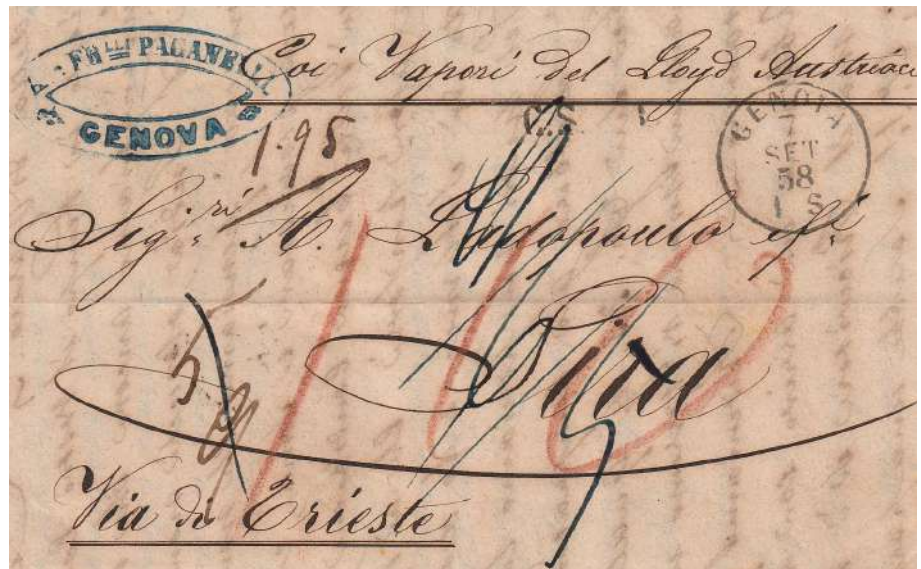 FRlli PAGANE
GENOVA
Coi Vapori del Lloyd Austriaco
1.95
C.S. 1.
GENOVA
7
SET
58
1 S
Sigri A. Ladopoulo
Sira
Via di Trieste